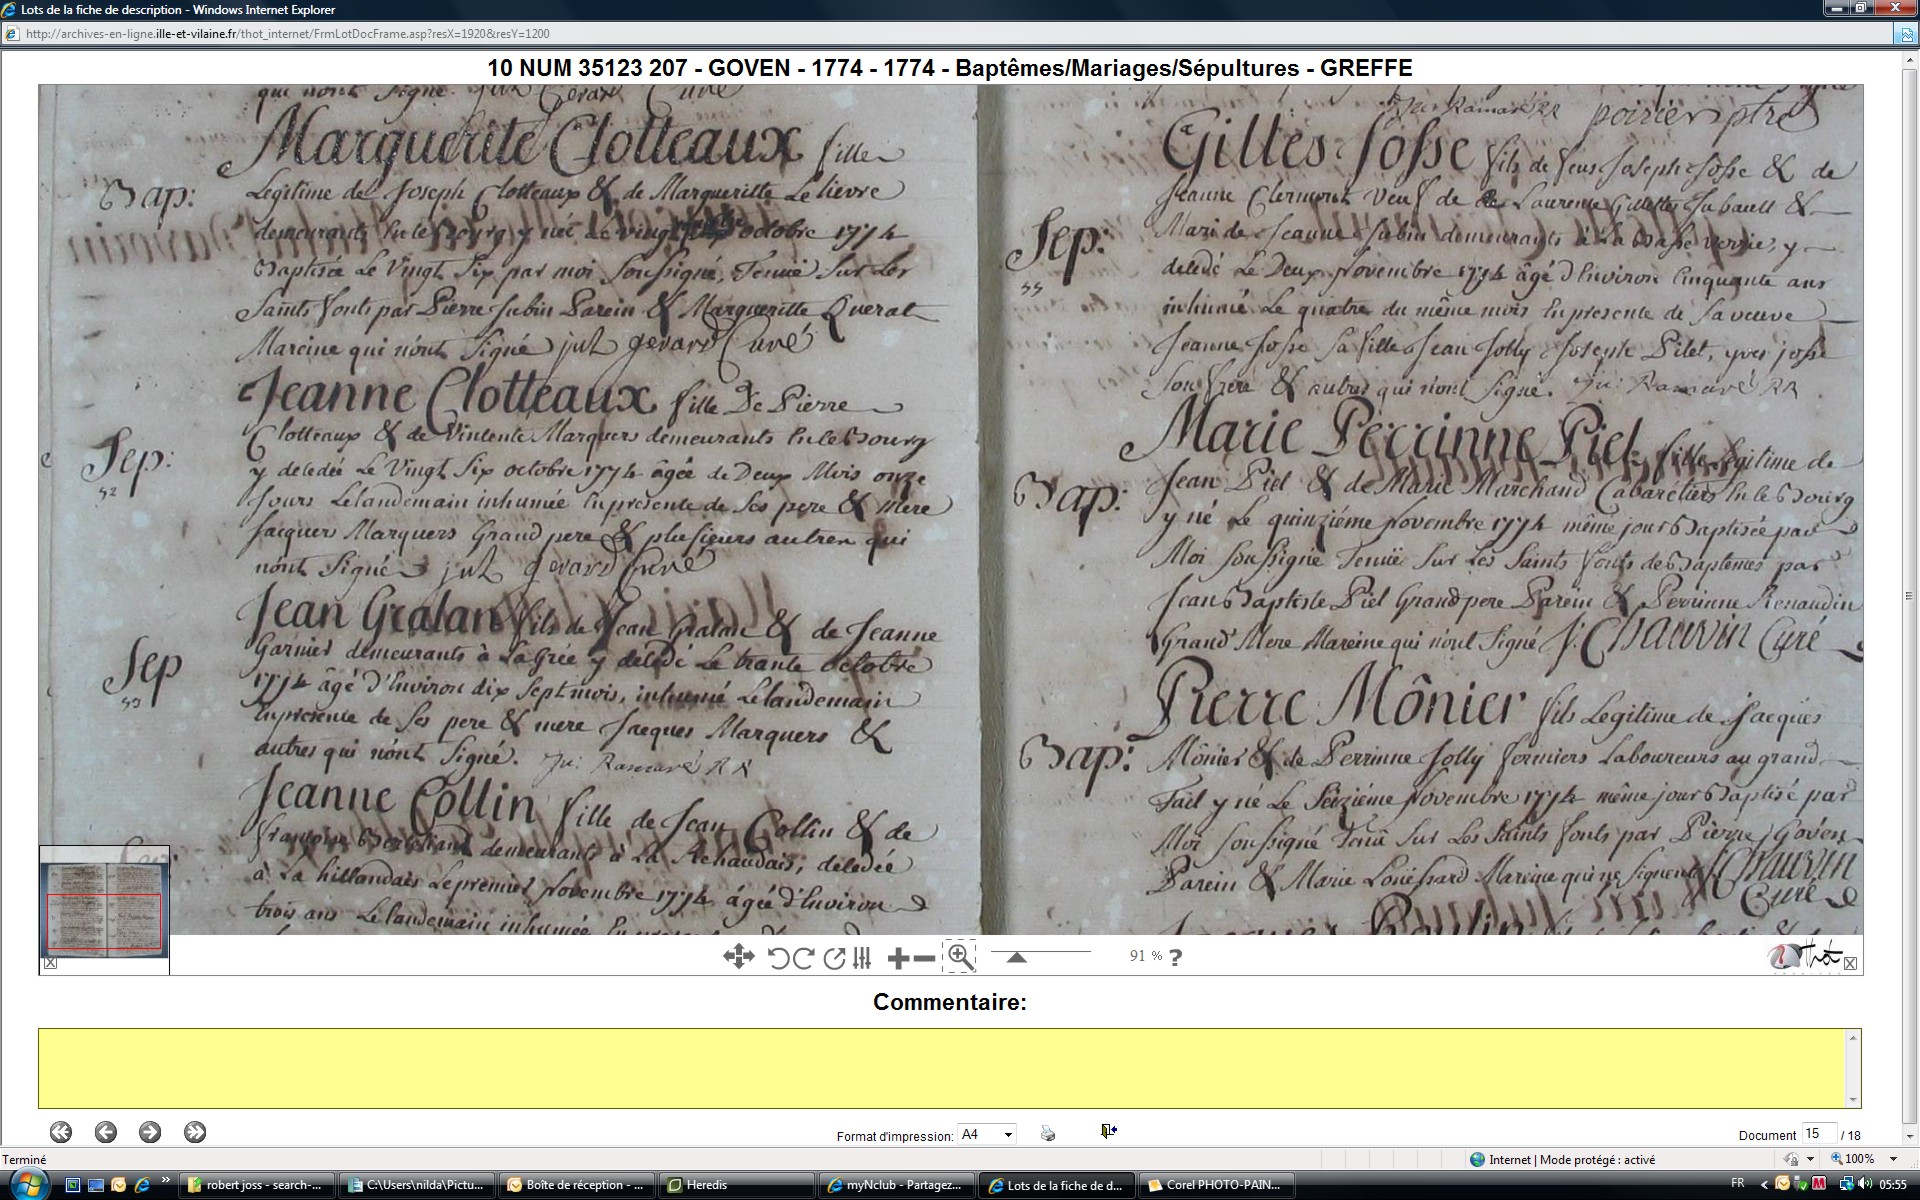 Lots de la fiche de description - Windows Internet Explorer
http://archives-en-ligne.ille-et-vilaine.fr/thot_internet/FrmLotDocFrame.asp?resX=1920&resY=1200
10 NUM 35123 207 - GOVEN - 1774 - 1774 - Baptêmes/Mariages/Sépultures - GREFFE
qui nont Signé. Gerard Curé
Marguerite Clotteaux fille
Bap:
Legitime de Joseph Clotteaux & de Margueritte Le lievre
demeurants En le Bourg y née Le vingt octobre 1774
Baptisée Le Vingt Six par moi Soussigné, Tenuë Sur Les
Saints fonts par Pierre Jubin Parein & Margueritte Querat
Mareine qui n'ont Signé jul gerard Curé
Jeanne Clotteaux fille De Pierre
Sep:
52
Clotteaux & de Vincente Marquers demeurants En le Bourg
y decedée Le Vingt Six octobre 1774 âgée de Deux Mois onze
Jours Le landemain inhumée En presente de Ses pere & mere
Jacques Marquers Grand pere & plusieurs autres qui
n'ont Signé jul gerard Curé
Jean Gralan fils de Jean Gralan & de Jeanne
Sep
53
Garnier demeurants à La Grée y decedé Le trante octobre
1774 âgé d'Environ dix Sept mois, inhumé Le landemain
En presente de Ses pere & mere Jacques Marquers &
autres qui n'ont Signé. Ju: Ramaré RR
Jeanne Collin fille de Jean Collin & de
françoise demeurants à La Renaudais, decedée
à La hillandais Le premier Novembre 1774 âgée d'Environ
trois ans Le landemain inhumée En
Ju: Ramaré RR poirier ptre
Gilles Josse fils de feus Joseph Josse & de
Sep:
55
Jeanne Clermont Veuf de Laurence Gillette Jubault &
Mari de Jeanne Jubin demeurants à La Basse verrie, y
decedé Le Deux Novembre 1774 âgé d'Environ Cinquante ans
inhumé Le quatre du même mois En presente de Sa veuve
Jeanne Josse Sa fille Jean Jolly Joseph Pilet, yves josse
Son frere & autres qui n'ont Signé. Ju: Ramaré RR
Marie Perrinne Piel fille Legitime de
Bap:
Jean Piel & de Marie Marchand Cabarétiers En le Bourg
y né Le quinziéme Novembre 1774 même jour Baptisée par
Moi Soussigné Tenuë Sur Les Saints fonts de Baptêmes par
Jean Baptiste Piel Grand pere Parein & Perrinne Renaudin
Grand' Mere Mareine qui n'ont Signé J: Chauvin Curé
Pierre Mônier fils Legitime de Jacques
Bap:
Mônier & de Perrinne Jolly fermiers Laboureurs au grand
Fail y né Le Seiziéme Novembre 1774 même jour Baptisé par
Moi Soussigné Tenû Sur Les Saints fonts par Pierre Goven
Parein & Marie Mareine qui ne Signent J: Chauvin
Curé
91 % ?
Thot
Commentaire:
Format d'impression: A4
Document 15 / 18
Terminé
Internet | Mode protégé : activé
100%
robert joss - search-...
C:\Users\nilda\Pictu...
Boîte de réception - ...
Heredis
myNclub - Partagez...
Lots de la fiche de d...
Corel PHOTO-PAIN...
FR
05:55